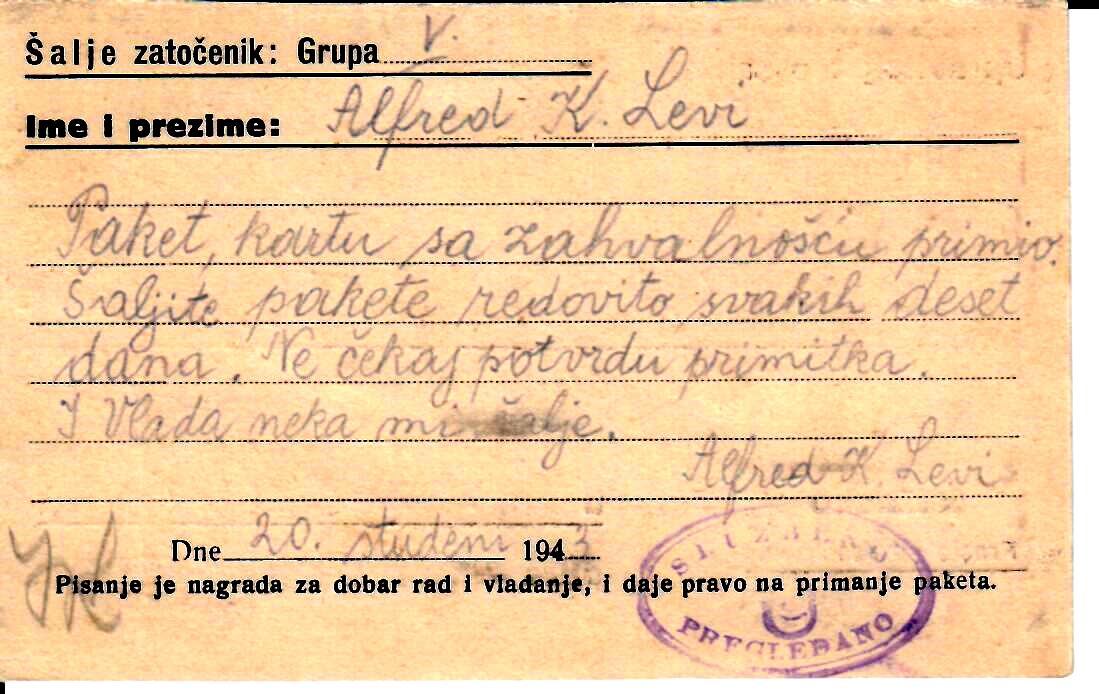 Šalje zatočenik: Grupa V.
Ime i prezime: Alfred K. Levi
Paket, kartu sa zahvalnošću primio.
Šaljite pakete redovito svakih deset
dana. Ne čekaj potvrdu primitka.
I Vlada neka mi šalje.
Alfred K. Levi
Dne 20. studeni 1943
Pisanje je nagrada za dobar rad i vladanje, i daje pravo na primanje paketa.
SLUŽBENO
PREGLEDANO